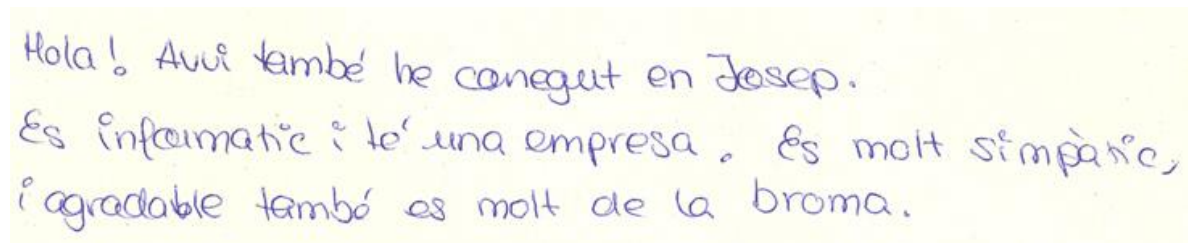 Hola! Avui també he conegut en Josep.
Es informatic i té una empresa. És molt simpàtic,
i agradable tambó es molt de la broma.